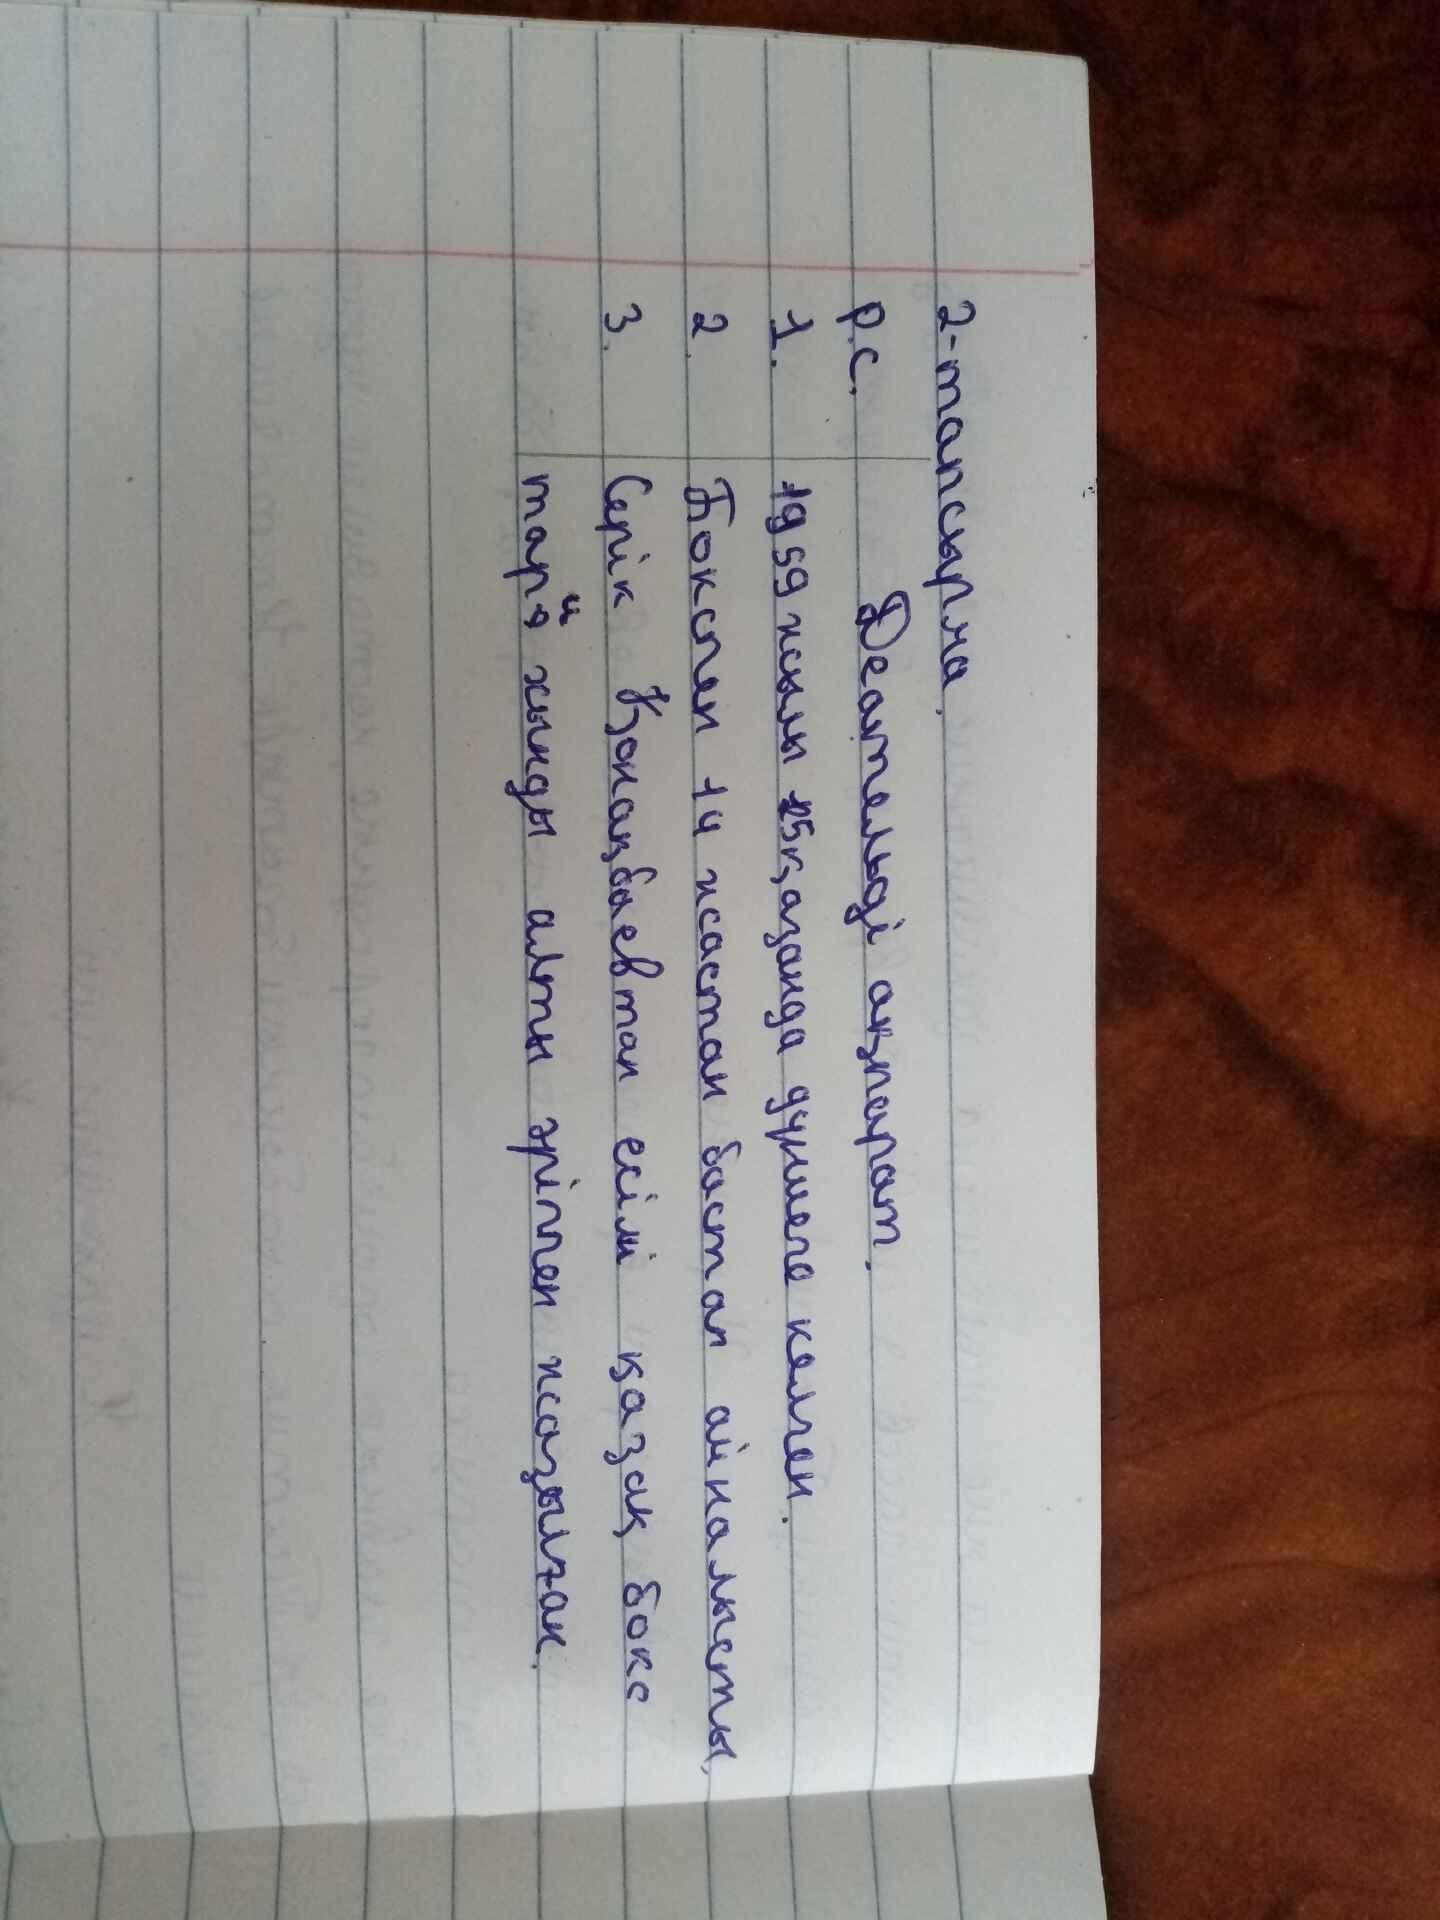 2-тапсырма.
Р.С. Деательді ақпарат.
1. 1959 жылы 25қазанда дүниеге келген.
2. Бокспен 14 жастан бастап айналысты.
3. Серік Қонақбаевтан есімі қазақ бокс
тарй хынды алтн әріппен жазылған.